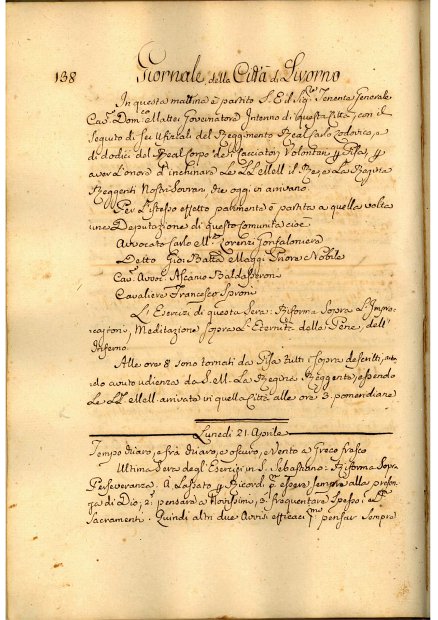 138 Giornale della Città di Livorno
In questa mattina è partito S. E. il Sig.r Tenente Generale
Cav. Dom.co Mattei Governatore Interno di questa Città, con il
seguito di sei Ufiziali del Reggimento Real Carlo Lodovico, e
di dodici del Real Corpo dei Cacciatori Volontari p Pisa, p
aver l'onore d'inchinare le LL. MM. il Re, e La Regina
Reggenti Nostri Sovrani, che oggi vi arrivano.
Per l'istesso effetto parimente è partita a quella volta
una Deputazione di questa Comunità cioè
Avvocato Carlo M.a Lorenzi Gonfaloniere
Detto Gio: Batta Maggi Priore e Nobile
Cav. Avvoc. Ascanio Baldasseroni
Cavaliere Francesco Sproni
L'Esercizi di questa Sera: Riforma Sopra l'Impre-
cazioni, Meditazione sopra l'Eternità delle Pene, dell'
Inferno
Alle ore 8 sono tornati da Pisa tutti i sopra descritti,
do avuto udienza da S. M. La Regina Reggente, essendo
Le LL. MM. arrivate in quella Città alle ore 3. pomeridiane
Lunedì 21. Aprile
Tempo chiaro, e frà chiaro, e oscuro, e Vento a Greco fresco
Ultima Sera degl'Esercizi in S. Sebastiano: Riforma Sopra
Perseveranza. À Lassato p Ricordi p.o essere sempre alla presen-
za di Dio; 2.o pensare a Novissimi, 3.o frequentare spesso i SS.mi
Sacramenti. Quindi altri due Avvisi efficaci p.mo pensar sempre